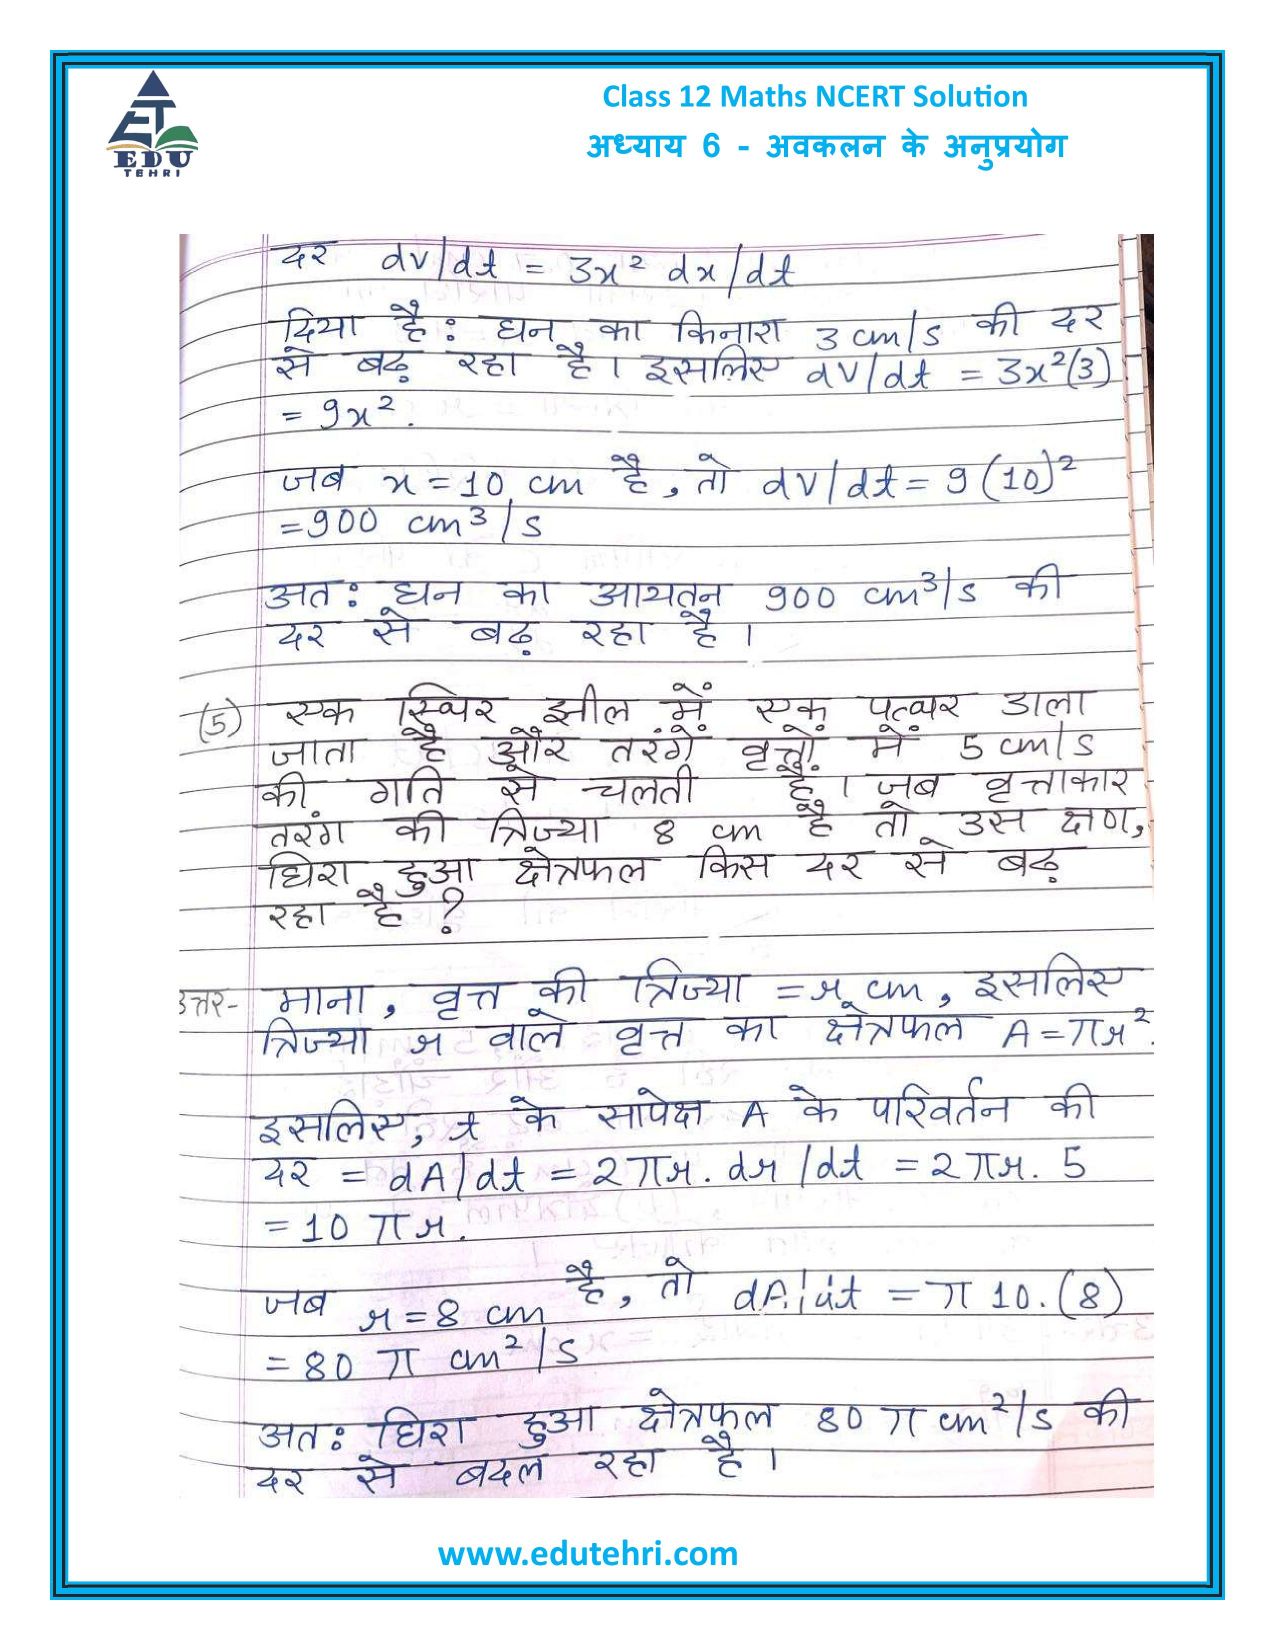 ET
EDU
TEHRI
Class 12 Maths NCERT Solution
अध्याय 6 - अवकलन के अनुप्रयोग
दर dv/dt = 3x² dx/dt
दिया है : घन का किनारा 3 cm/s की दर
से बढ़ रहा है । इसलिए dV/dt = 3x²(3)
= 9x².
जब x = 10 cm है, तो dV/dt = 9 (10)²
= 900 cm³/s
अत: घन का आयतन 900 cm³/s की
दर से बढ़ रहा है ।
(5) एक स्थिर झील में एक पत्थर डाला
जाता है और तरंगें वृत्तों में 5 cm/s
की गति से चलती हैं । जब वृत्ताकार
तरंग की त्रिज्या 8 cm है तो उस क्षण,
घिरा हुआ क्षेत्रफल किस दर से बढ़
रहा है ?
उत्तर- माना, वृत्त की त्रिज्या = r cm, इसलिए
त्रिज्या r वाले वृत्त का क्षेत्रफल A = πr².
इसलिए, t के सापेक्ष A के परिवर्तन की
दर = dA/dt = 2πr. dr/dt = 2πr. 5
= 10 πr.
जब r = 8 cm है, तो dA/dt = π 10. (8)
= 80 π cm²/s
अत: घिरा हुआ क्षेत्रफल 80 π cm²/s की
दर से बदल रहा है ।
www.edutehri.com